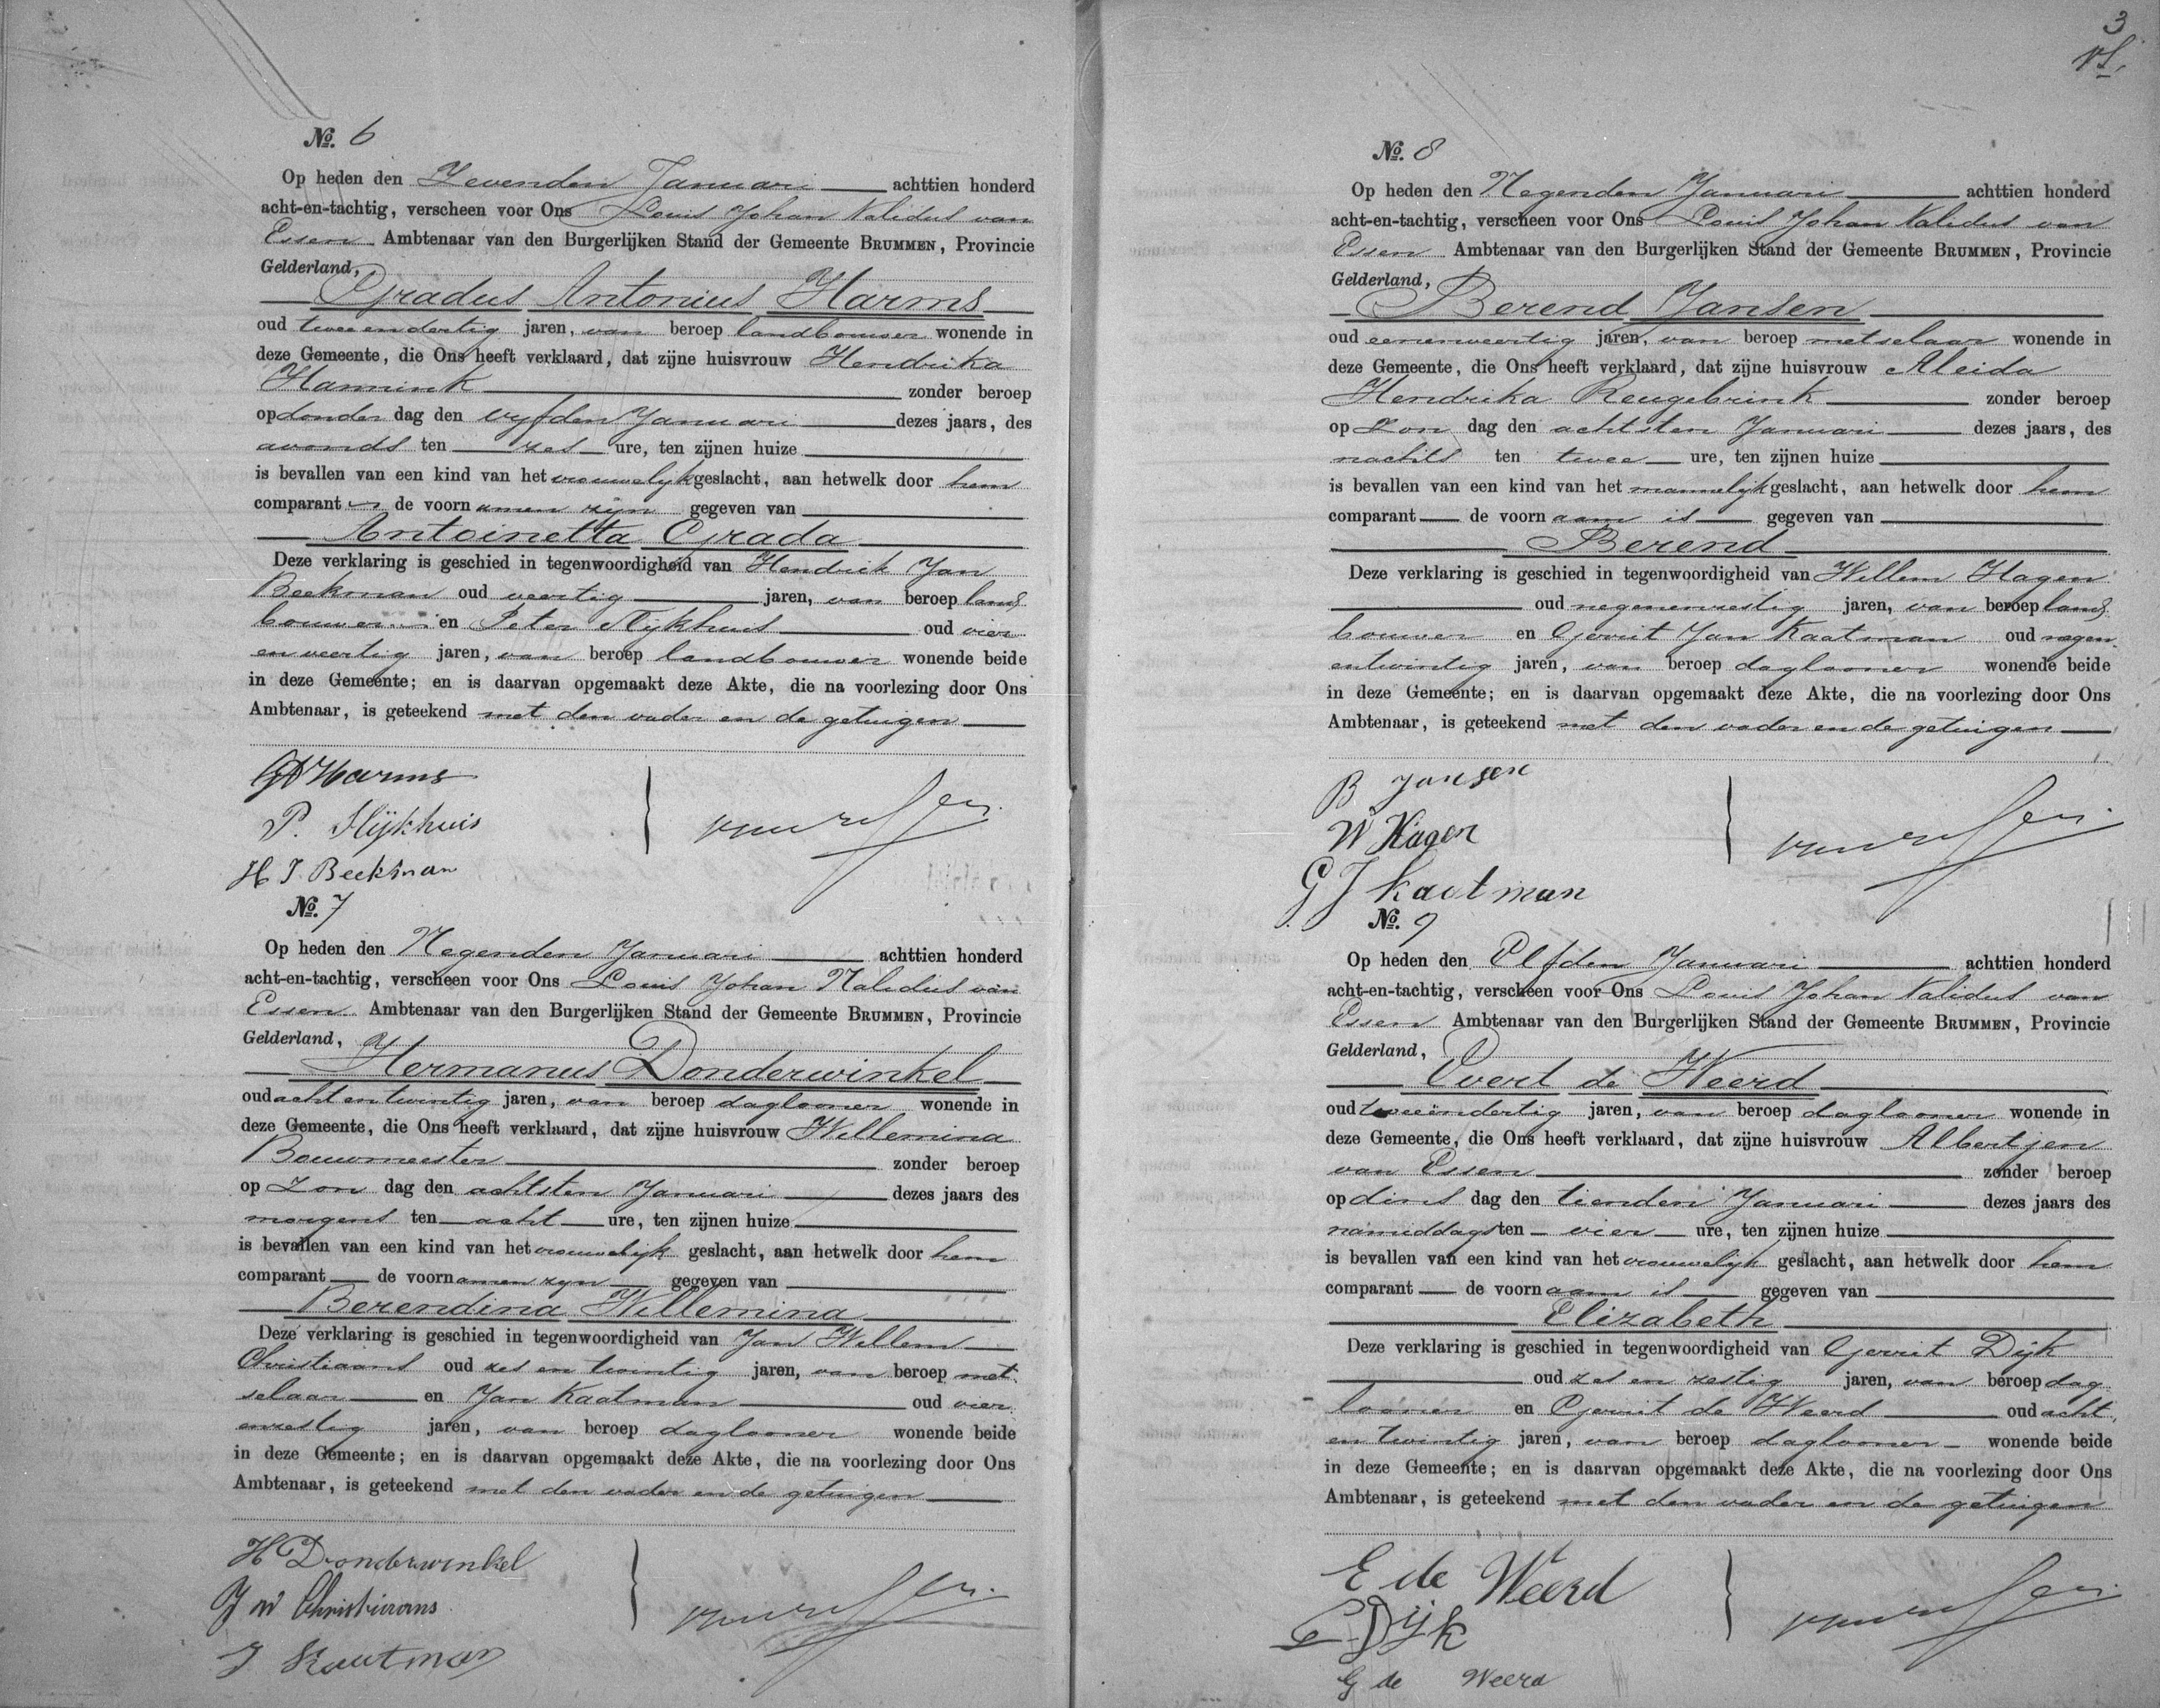 No. 6
Op heden den Zevenden Januari achttien honderd
acht-en-tachtig, verscheen voor Ons Louis Johan Validus van
Essen Ambtenaar van den Burgerlijken Stand der Gemeente BRUMMEN, Provincie
Gelderland,
Gradus Antonius Harms
oud tweeendertig jaren, van beroep landbouwer wonende in
deze Gemeente, die Ons heeft verklaard, dat zijne huisvrouw Hendrika
Hannink zonder beroep
op donder dag den vyfden Januari dezes jaars, des
avonds ten zes ure, ten zijnen huize
is bevallen van een kind van het vrouwelyk geslacht, aan hetwelk door hem
comparant de voornamen zijn gegeven van
Antoinetta Grada
Deze verklaring is geschied in tegenwoordigheid van Hendrik Jan
Beekman oud veertig jaren, van beroep land
bouwer en Peter Slijkhuis oud vier
en veertig jaren, van beroep landbouwer wonende beide
in deze Gemeente; en is daarvan opgemaakt deze Akte, die na voorlezing door Ons
Ambtenaar, is geteekend met den vader en de getuigen
GA Harms
P. Slijkhuis
H J. Beekman
No. 7
Op heden den Negenden Januari achttien honderd
acht-en-tachtig, verscheen voor Ons Louis Johan Validus van
Essen Ambtenaar van den Burgerlijken Stand der Gemeente BRUMMEN, Provincie
Gelderland,
Hermanus Donderwinkel
oud achtentwintig jaren, van beroep daglooner wonende in
deze Gemeente, die Ons heeft verklaard, dat zijne huisvrouw Willemina
Bouwmeester zonder beroep
op Zon dag den achtsten Januari dezes jaars des
morgens ten acht ure, ten zijnen huize
is bevallen van een kind van het vrouwelyk geslacht, aan hetwelk door hem
comparant de voornamen zyn gegeven van
Berendina Willemina
Deze verklaring is geschied in tegenwoordigheid van Jan Willem
Christiaans oud zes en twintig jaren, van beroep met
selaar en Jan Kaatman oud vier
enzestig jaren, van beroep daglooner wonende beide
in deze Gemeente; en is daarvan opgemaakt deze Akte, die na voorlezing door Ons
Ambtenaar, is geteekend met den vader en de getuigen
H Donderwinkel
J W Christiaans
J Kaatman
3
No. 8
Op heden den Negenden Januari achttien honderd
acht-en-tachtig, verscheen voor Ons Louis Johan Validus van
Essen Ambtenaar van den Burgerlijken Stand der Gemeente BRUMMEN, Provincie
Gelderland,
Berend Jansen
oud eenenveertig jaren, van beroep metselaar wonende in
deze Gemeente, die Ons heeft verklaard, dat zijne huisvrouw Aleida
Hendrika Reugebrink zonder beroep
op Zon dag den achtsten Januari dezes jaars, des
nachts ten twee ure, ten zijnen huize
is bevallen van een kind van het mannelijk geslacht, aan hetwelk door hem
comparant de voornaam is gegeven van
Berend
Deze verklaring is geschied in tegenwoordigheid van Willem Hagen
oud negenenzestig jaren, van beroep land
bouwer en Gerrit Jan Kaatman oud negen
entwintig jaren, van beroep daglooner wonende beide
in deze Gemeente; en is daarvan opgemaakt deze Akte, die na voorlezing door Ons
Ambtenaar, is geteekend met den vader en de getuigen
B Jansen
W Hagen
G J Kaatman
No. 9
Op heden den Elfden Januari achttien honderd
acht-en-tachtig, verscheen voor Ons Louis Johan Validus van
Essen Ambtenaar van den Burgerlijken Stand der Gemeente BRUMMEN, Provincie
Gelderland,
Evert de Weerd
oud tweeëndertig jaren, van beroep daglooner wonende in
deze Gemeente, die Ons heeft verklaard, dat zijne huisvrouw Albertjen
van Essen zonder beroep
op dins dag den tienden Januari dezes jaars des
namiddags ten vier ure, ten zijnen huize
is bevallen van een kind van het vrouwelyk geslacht, aan hetwelk door hem
comparant de voornaam is gegeven van
Elizabeth
Deze verklaring is geschied in tegenwoordigheid van Gerrit Dijk
oud zes en zestig jaren, van beroep dag
looner en Gerrit de Weerd oud acht
en twintig jaren, van beroep daglooner wonende beide
in deze Gemeente; en is daarvan opgemaakt deze Akte, die na voorlezing door Ons
Ambtenaar, is geteekend met den vader en de getuigen
E de Weerd
G Dijk
G de Weerd